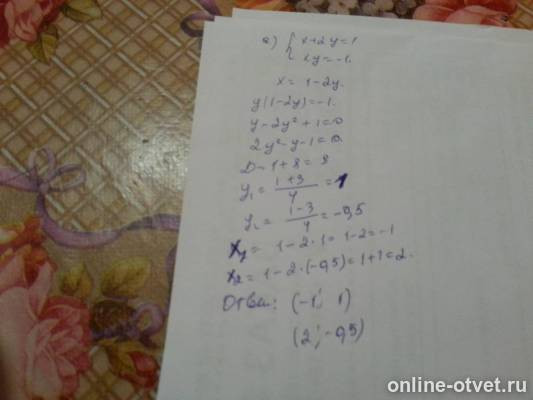 а) { x+2y=1
xy=-1.
x= 1-2y.
y(1-2y)=-1.
y-2y²+1=0
2y²-y-1=0.
D-1+8=8
y₁= (1+3)/4 =1
y₂= (1-3)/4 =-0,5
x₁= 1-2·1=1-2=-1
x₂=1-2·(-0,5)=1+1=2.
Ответ: (-1; 1)
(2;-0,5)
online-otvet.ru